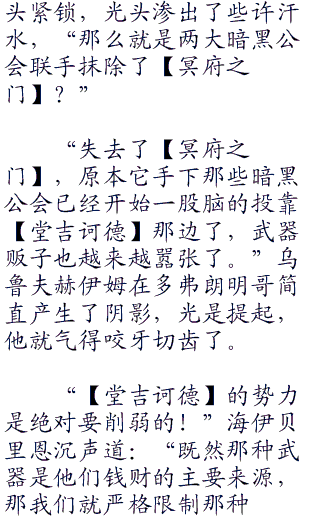 头紧锁，光头渗出了些许汗
水，“那么就是两大暗黑公
会联手抹除了【冥府之
门】？”
“失去了【冥府之
门】，原本它手下那些暗黑
公会已经开始一股脑的投靠
【堂吉诃德】那边了，武器
贩子也越来越嚣张了。”乌
鲁夫赫伊姆在多弗朗明哥简
直产生了阴影，光是提起，
他就气得咬牙切齿了。
“【堂吉诃德】的势力
是绝对要削弱的！”海伊贝
里恩沉声道：“既然那种武
器是他们钱财的主要来源，
那我们就严格限制那种